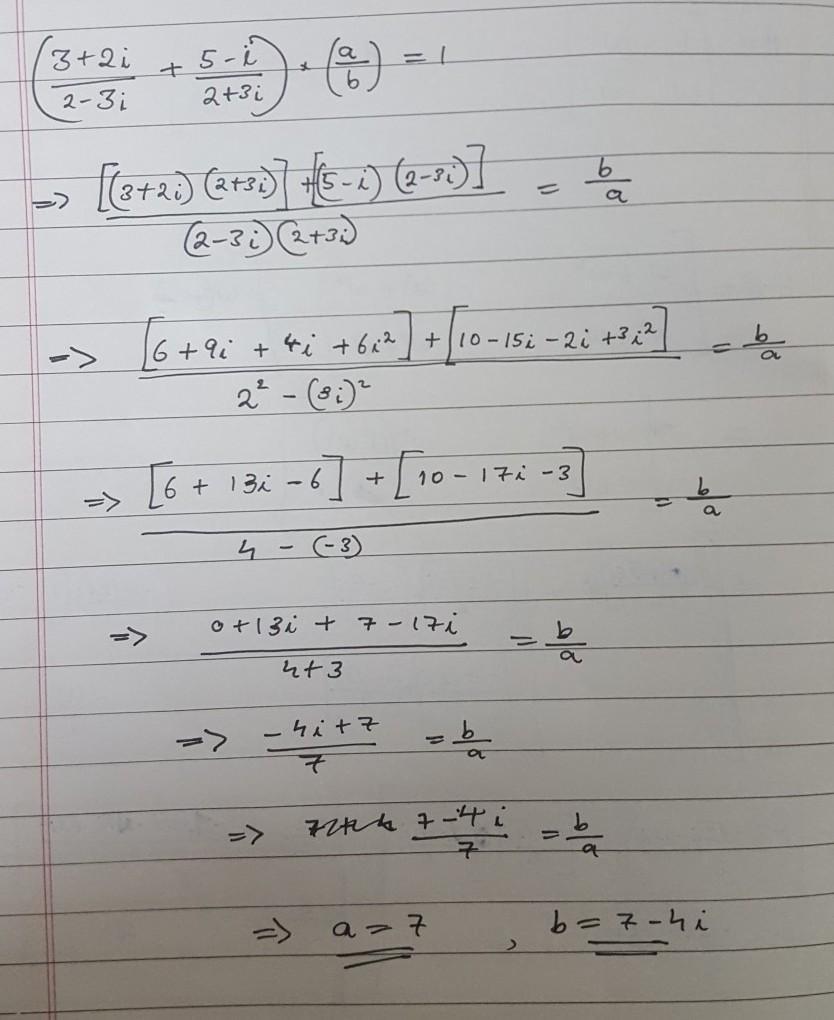 ((3+2i)/(2-3i) + (5-i)/(2+3i)) * (a/b) = 1
=> ([(3+2i)(2+3i)] + [(5-i)(2-3i)])/((2-3i)(2+3i)) = b/a
=> ([6+9i+4i+6i²] + [10-15i-2i+3i²])/(2²-(3i)²) = b/a
=> ([6+13i-6] + [10-17i-3])/(4-(-3)) = b/a
=> (0+13i+7-17i)/(4+3) = b/a
=> (-4i+7)/7 = b/a
=> (7-4i)/7 = b/a
=> a=7, b=7-4i